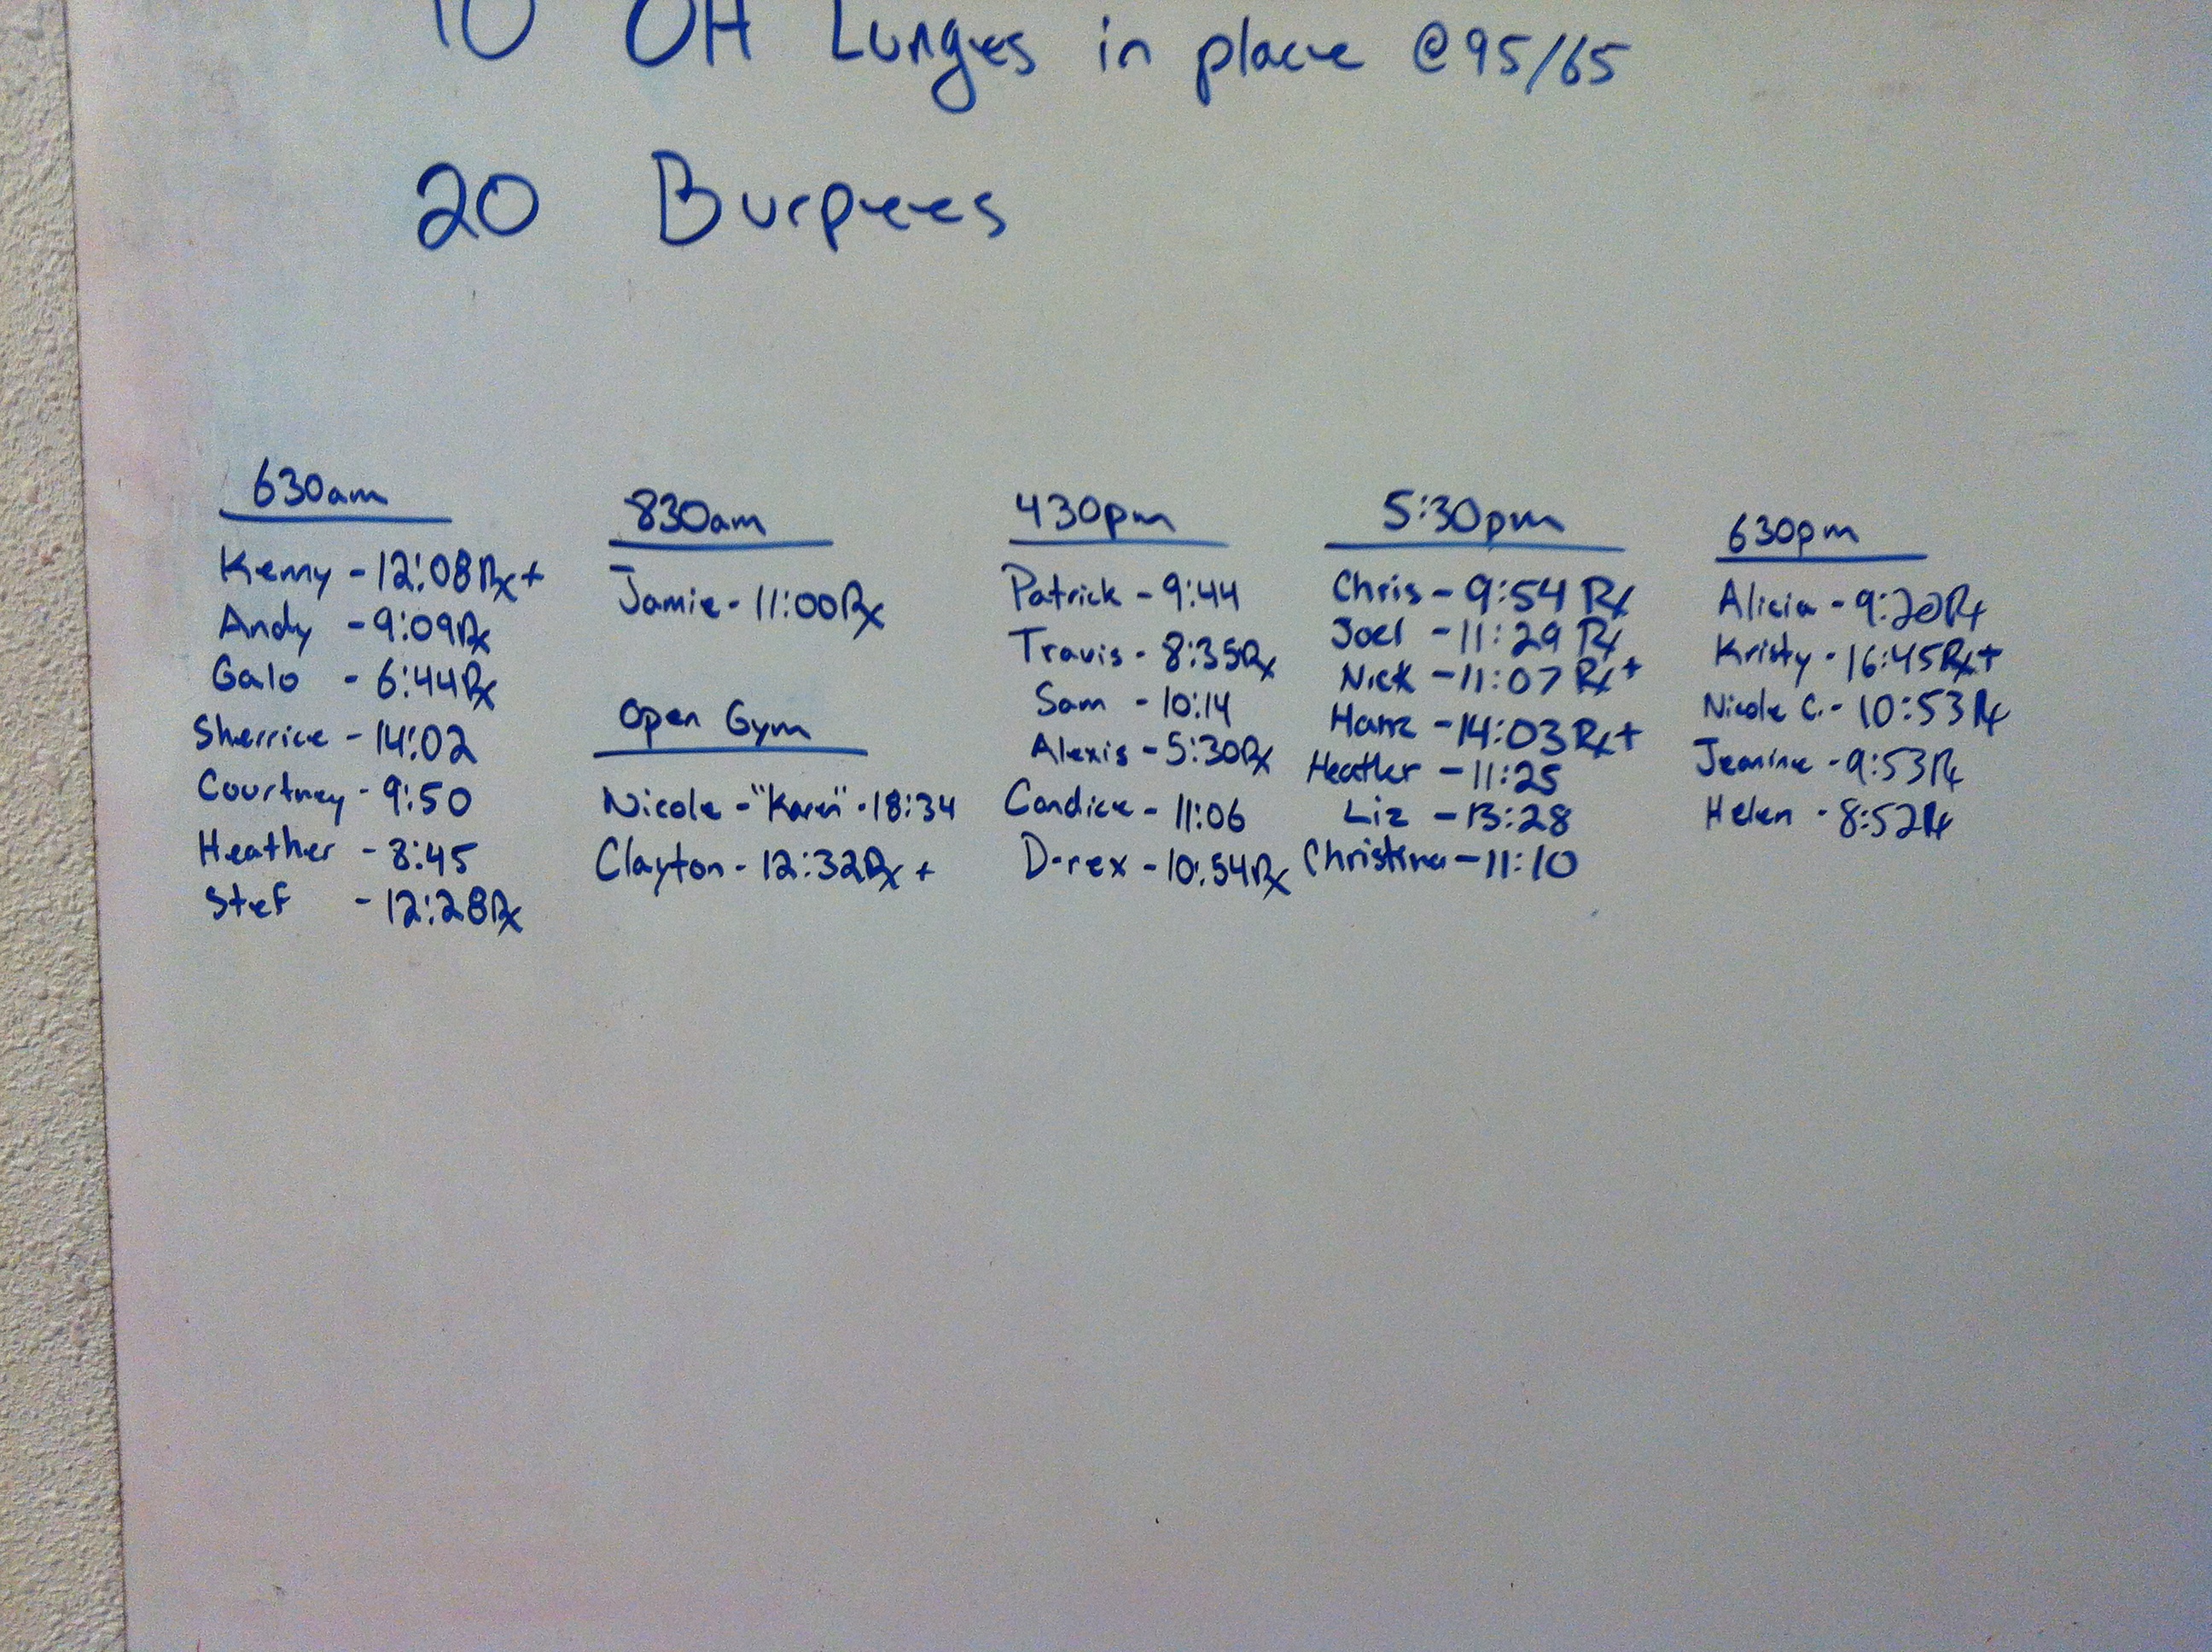 10 OH Lunges in place @95/65
20 Burpees
630am
Kenny - 12:08Rx+
Andy - 9:09Rx
Galo - 6:44Rx
Sherrice - 14:02
Courtney - 9:50
Heather - 8:45
Stef - 12:28Rx
830am
Jamie - 11:00Rx
Open Gym
Nicole - "Karen" - 18:34
Clayton - 12:32Rx +
430pm
Patrick - 9:44
Travis - 8:35Rx
Sam - 10:14
Alexis - 5:30Rx
Candice - 11:06
D-rex - 10:54Rx
5:30pm
Chris - 9:54 Rx
Joel - 11:29 Rx
Nick - 11:07 Rx+
- 14:03 Rx+
Heather - 11:25
Liz - 13:28
Christina - 11:10
630pm
Alicia - 9:20Rx
Kristy - 16:45Rx+
Nicole C. - 10:53Rx
Jeanine - 9:53Rx
Helen - 8:52Rx